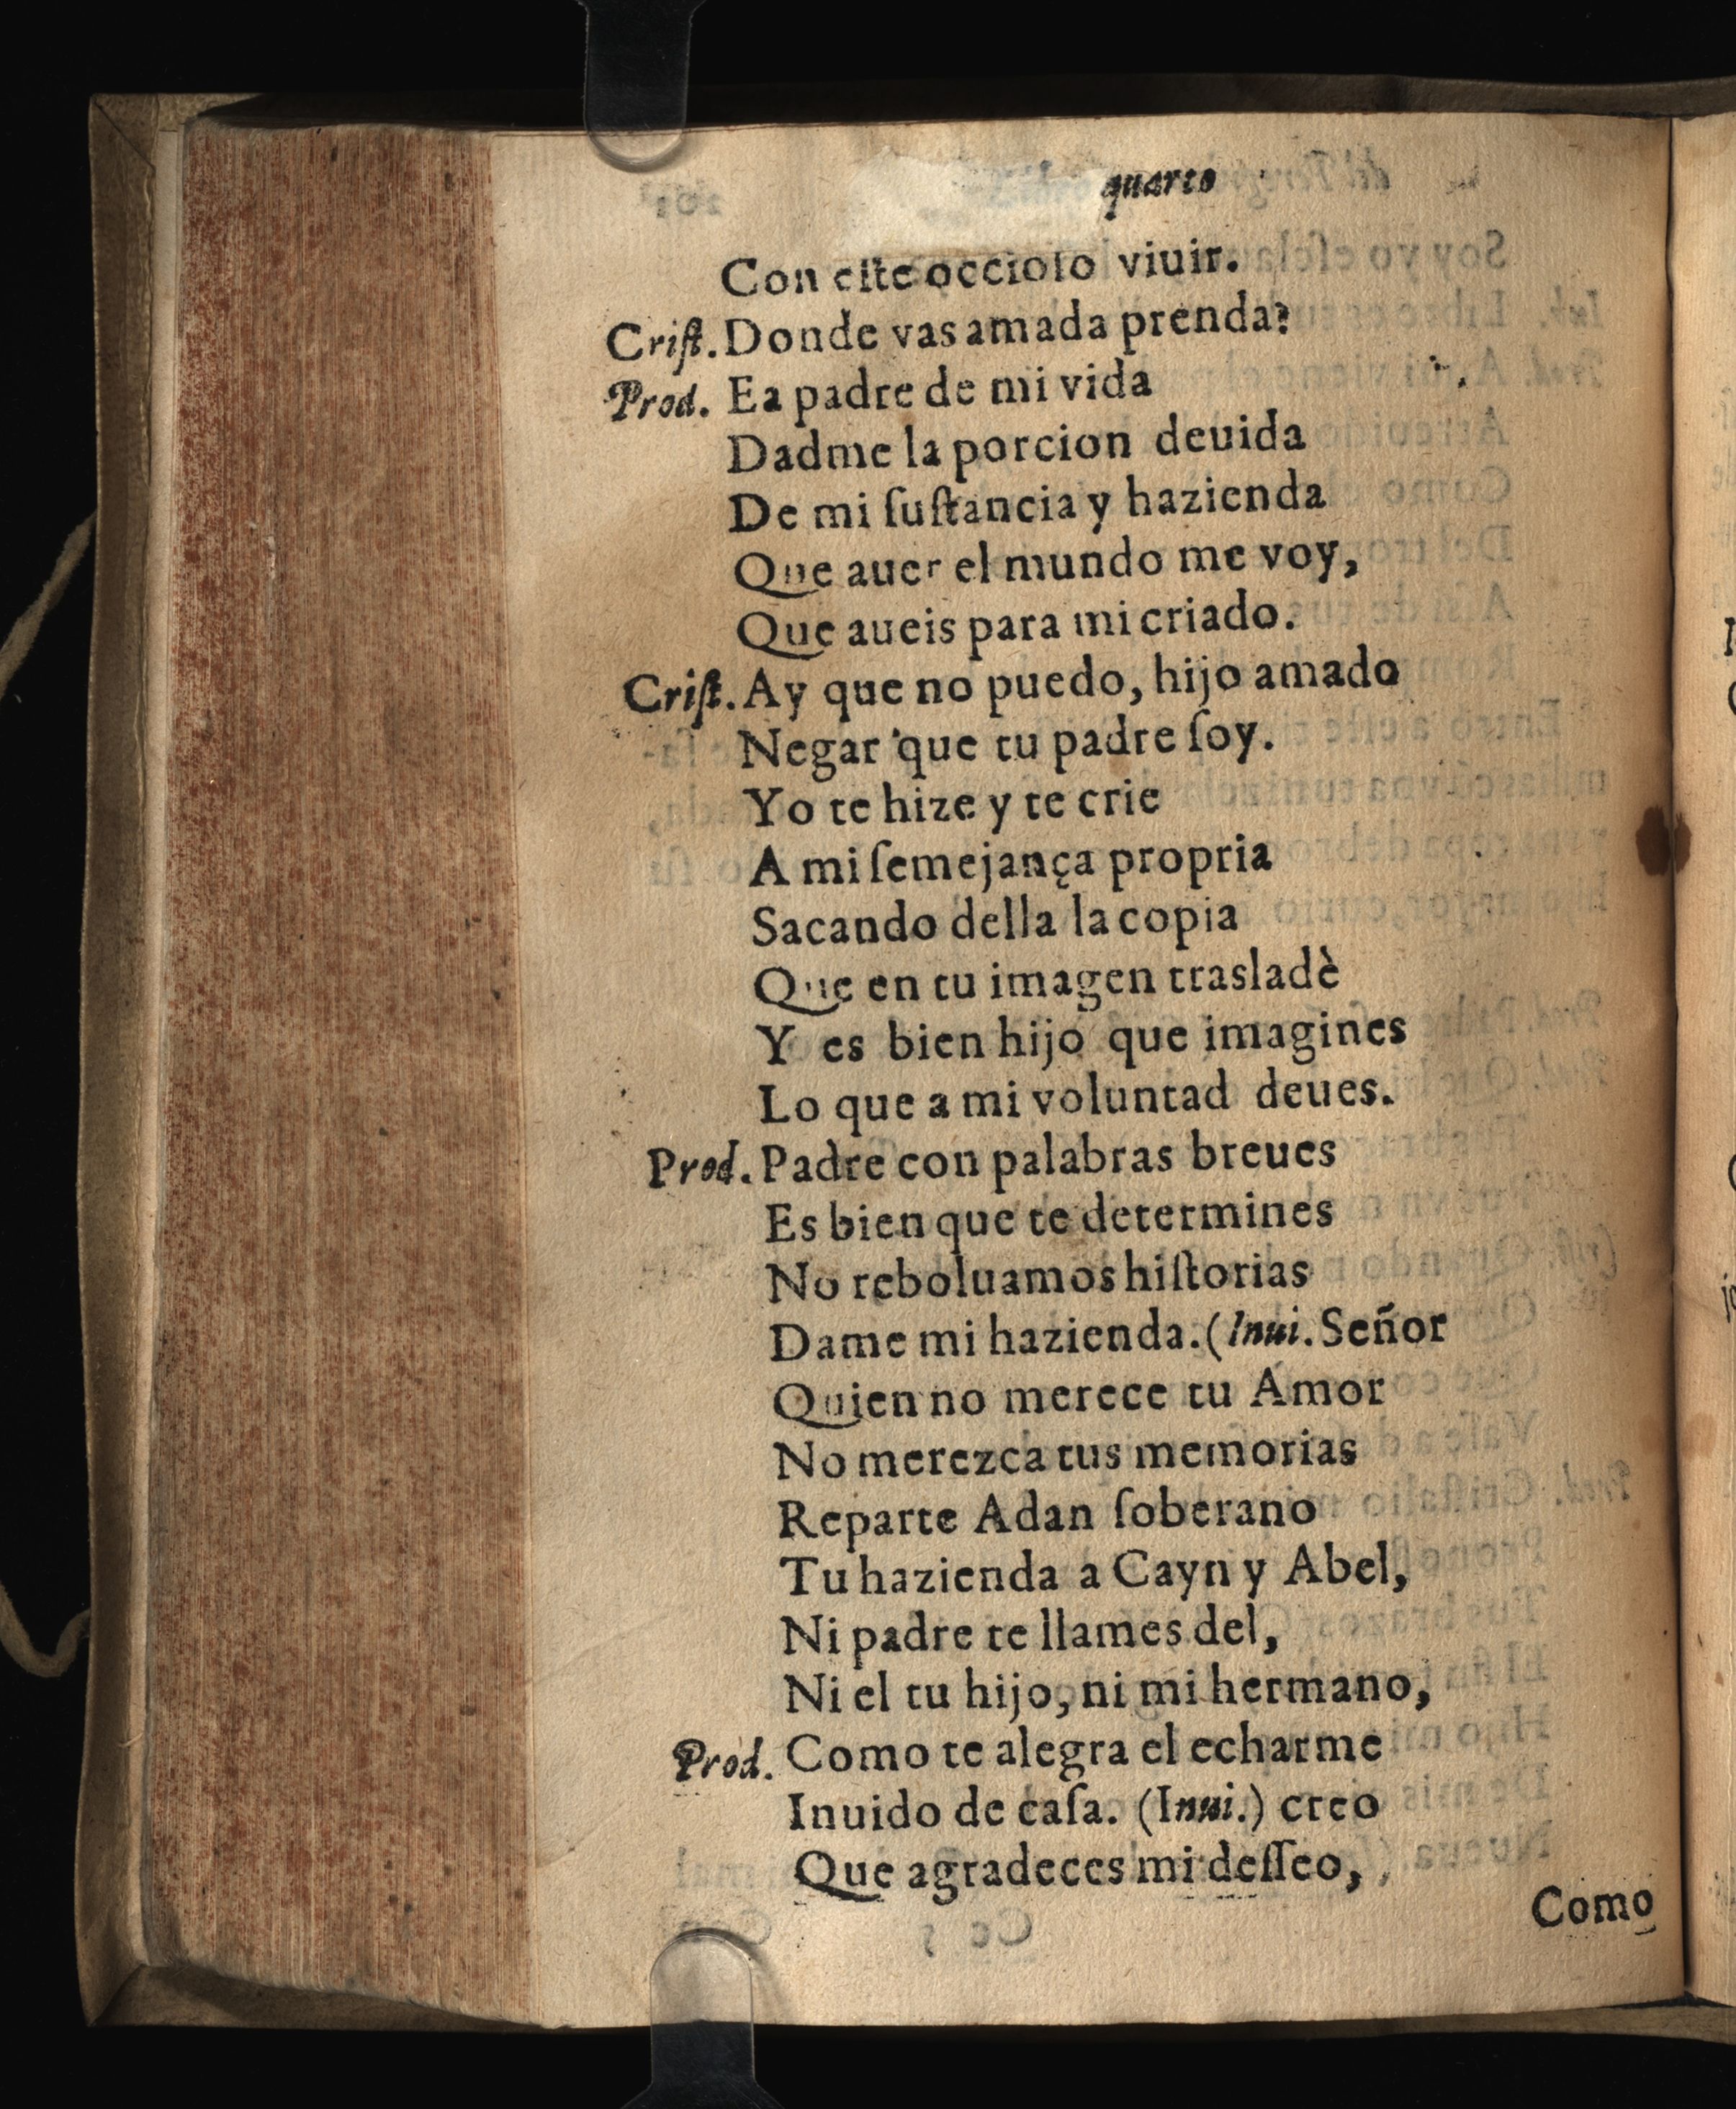 quarto
Con eſte occioſo viuir.
Criſt. Donde vas amada prenda?
Prod. Ea padre de mi vida
Dadme la porcion deuida
De mi ſuſtancia y hazienda
Que auer el mundo me voy,
Que aueis para mi criado.
Criſt. Ay que no puedo, hijo amado
Negar que tu padre ſoy.
Yo te hize y te crie
A mi ſemejança propria
Sacando della la copia
Que en tu imagen trasladè
Y es bien hijo que imagines
Lo que a mi voluntad deues.
Prod. Padre con palabras breues
Es bien que te determines
No reboluamos hiſtorias
Dame mi hazienda. (Inui. Señor
Quien no merece tu Amor
No merezca tus memorias
Reparte Adan ſoberano
Tu hazienda a Cayn y Abel,
Ni padre te llames del,
Ni el tu hijo, ni mi hermano,
Prod. Como te alegra el echarme
Inuido de caſa. (Inui.) creo
Que agradeces mi deſſeo,
Como